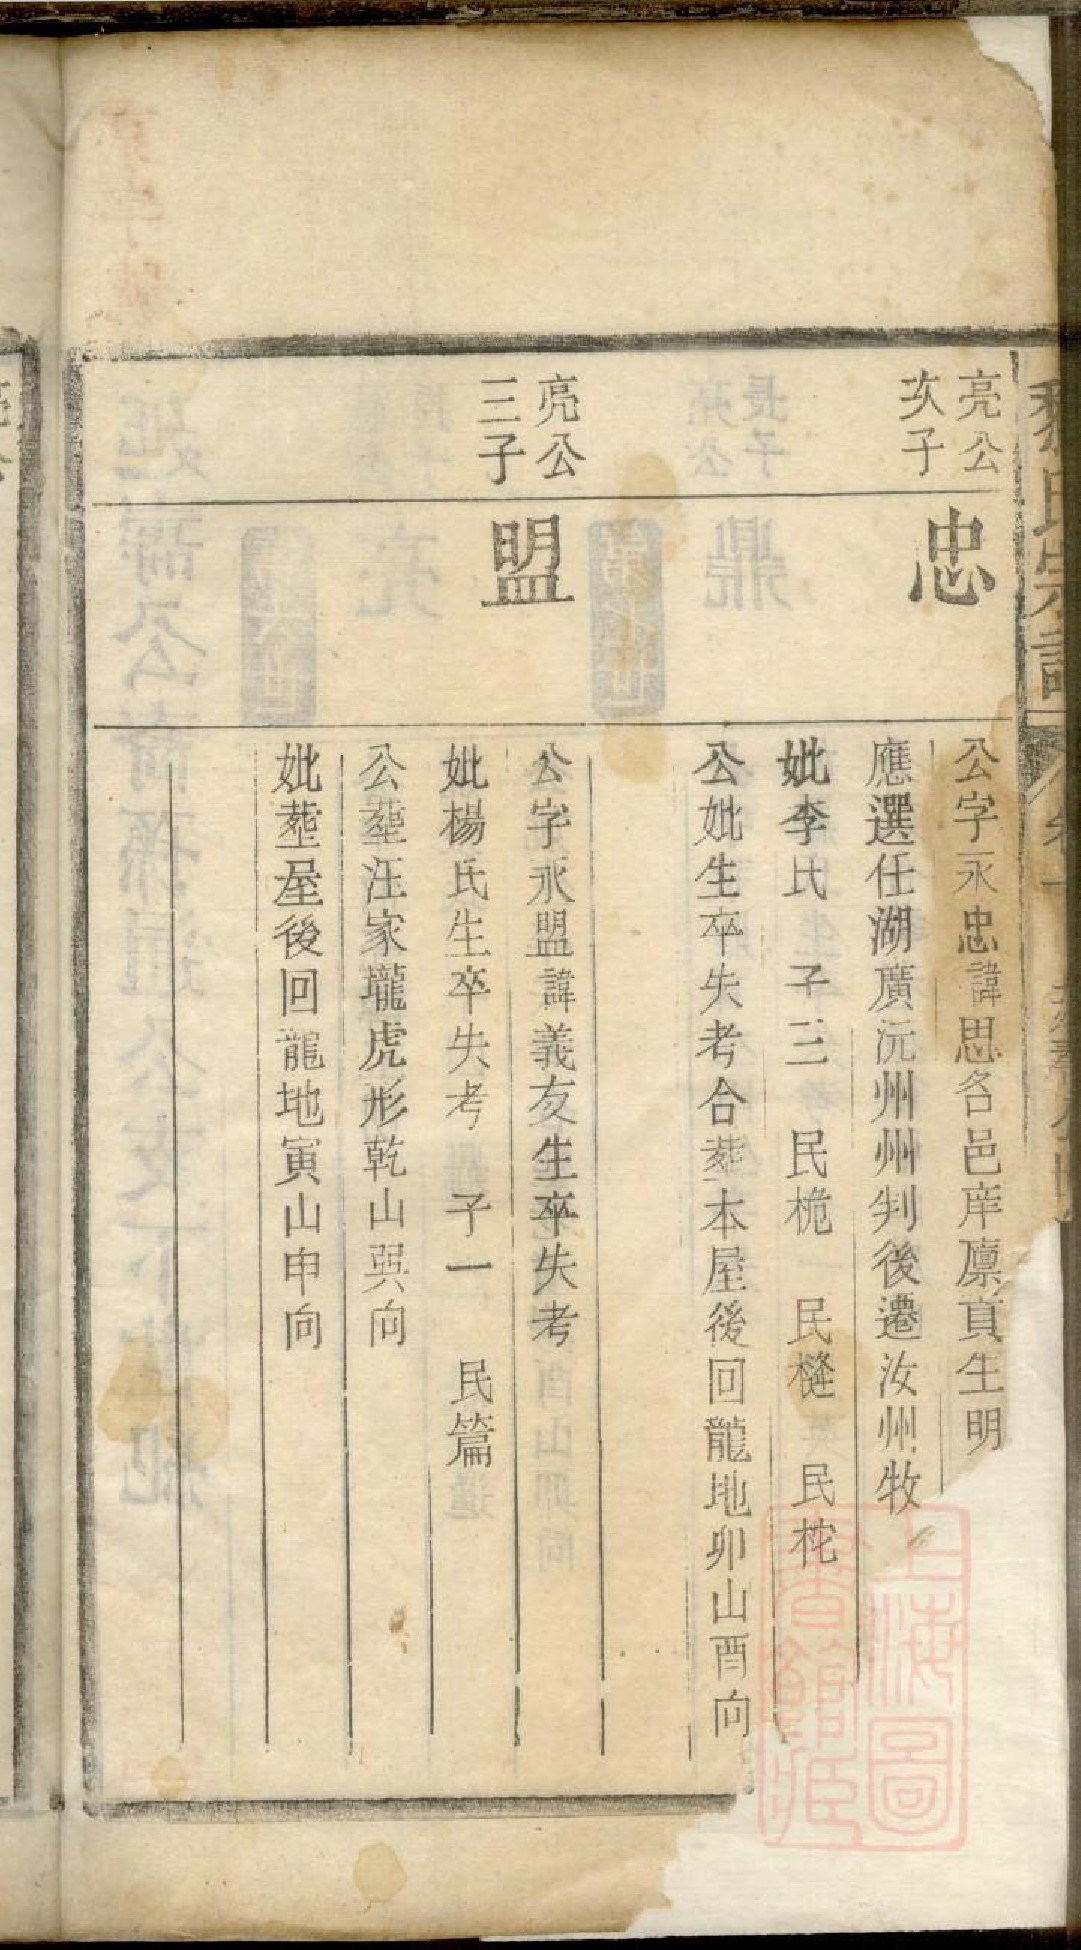 亮公
次子
忠
公字永忠諱思名邑庠廩貢生明
應選仕湖廣沅州州判後遷汝州牧
妣李氏 子三 民桅 民樅 民柁
公妣生卒失考合塟本屋後回龍地卯山酉向
亮公
三子
盟
公字永盟諱義友生卒失考
妣楊氏生卒失考 子一 民篇
公塟汪家壠虎形乾山巽向
妣塟屋後回龍地寅山申向
上海圖
書館藏